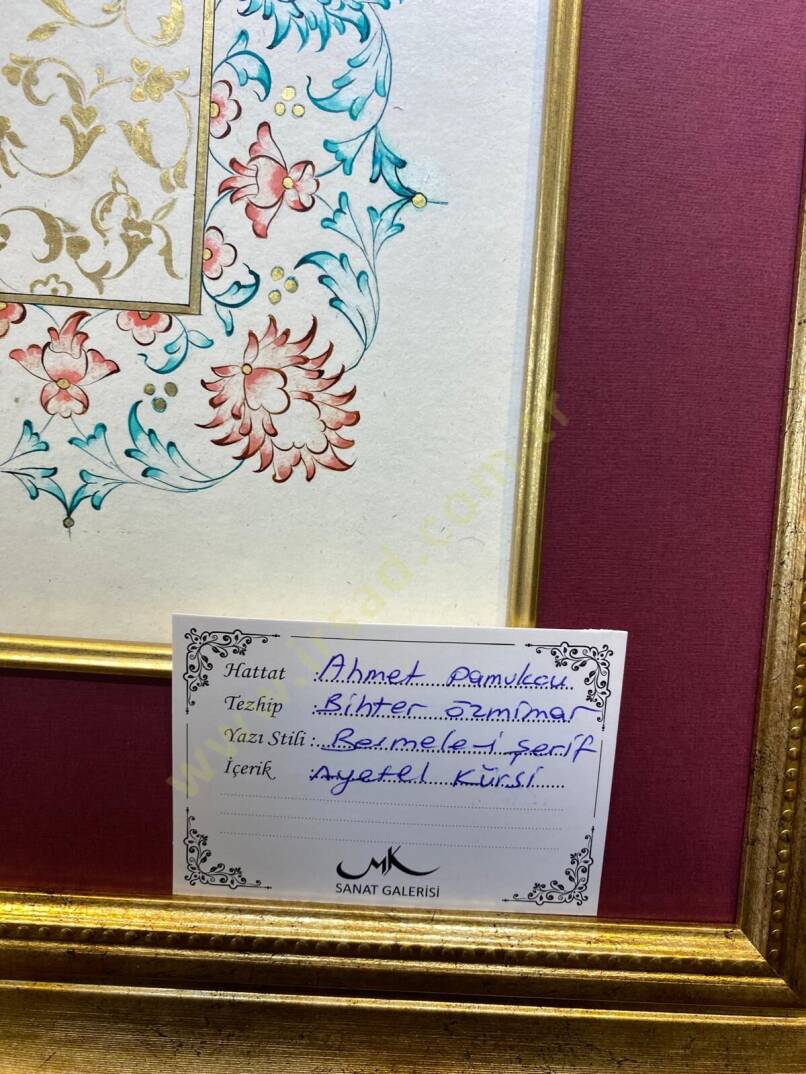 Hattat : Ahmet Pamukcu
Tezhip : Bihter özmimar
Yazı Stili : Besmele-i şerif
İçerik : Ayetel Kürsi
MK
SANAT GALERİSİ
www.irsad.com.tr